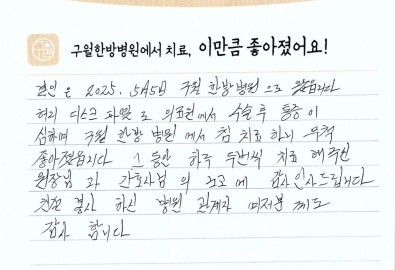 구월한방병원에서 치료, 이만큼 좋아졌어요!
본인은 2025. 5월5日 구월한방병원으로
허리 디스크 파열로 의료원에서 수술후 통증이
심하여 구월한방병원에서 침치료하니 무척
좋아졌읍니다 그동안 하루 두번씩 치료해주신
원장님과 간호사님의 노고에 감사인사드립니다
하신 병원 관계자 께도
감사합니다